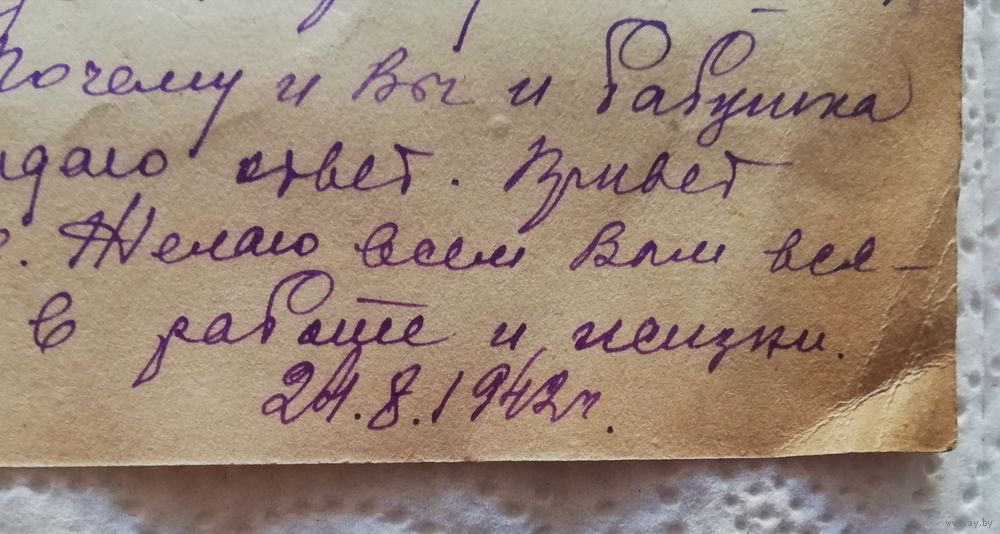 Почему и Вы и бабушка
ответ. Привет
Желаю всем Вам вся-
в работе и жизни.
24.8.1942г.
www.ay.by